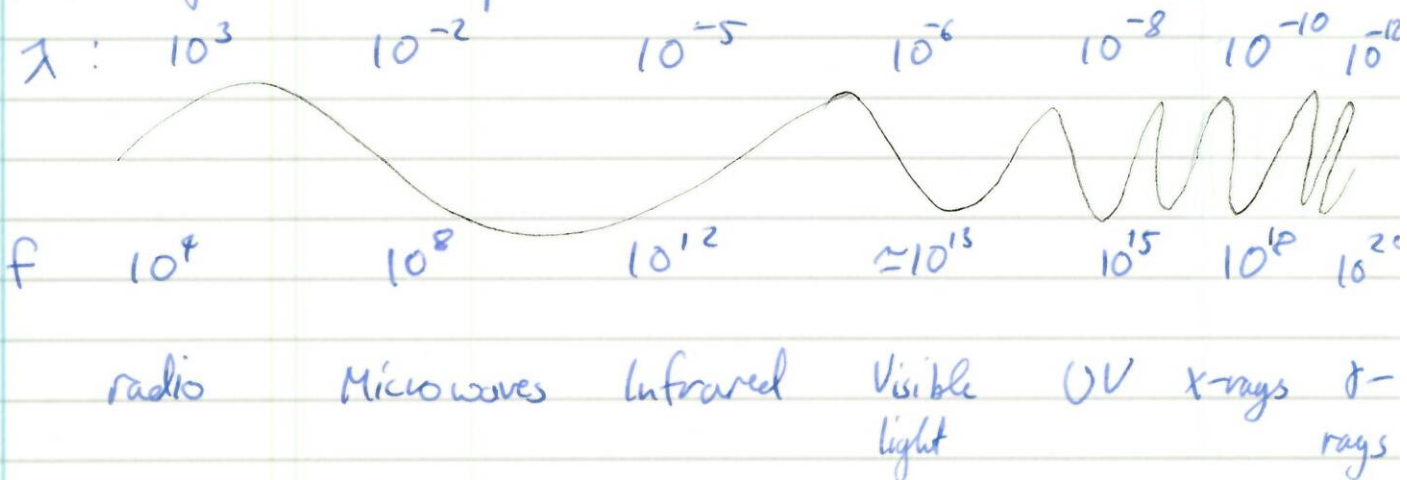 λ: 10³ 10⁻² 10⁻⁵ 10⁻⁶ 10⁻⁸ 10⁻¹⁰ 10⁻¹²
f 10⁴ 10⁸ 10¹² ≃10¹³ 10¹⁵ 10¹⁸ 10²⁰
radio Microwaves Infrared Visible UV X-rays γ-
light rays